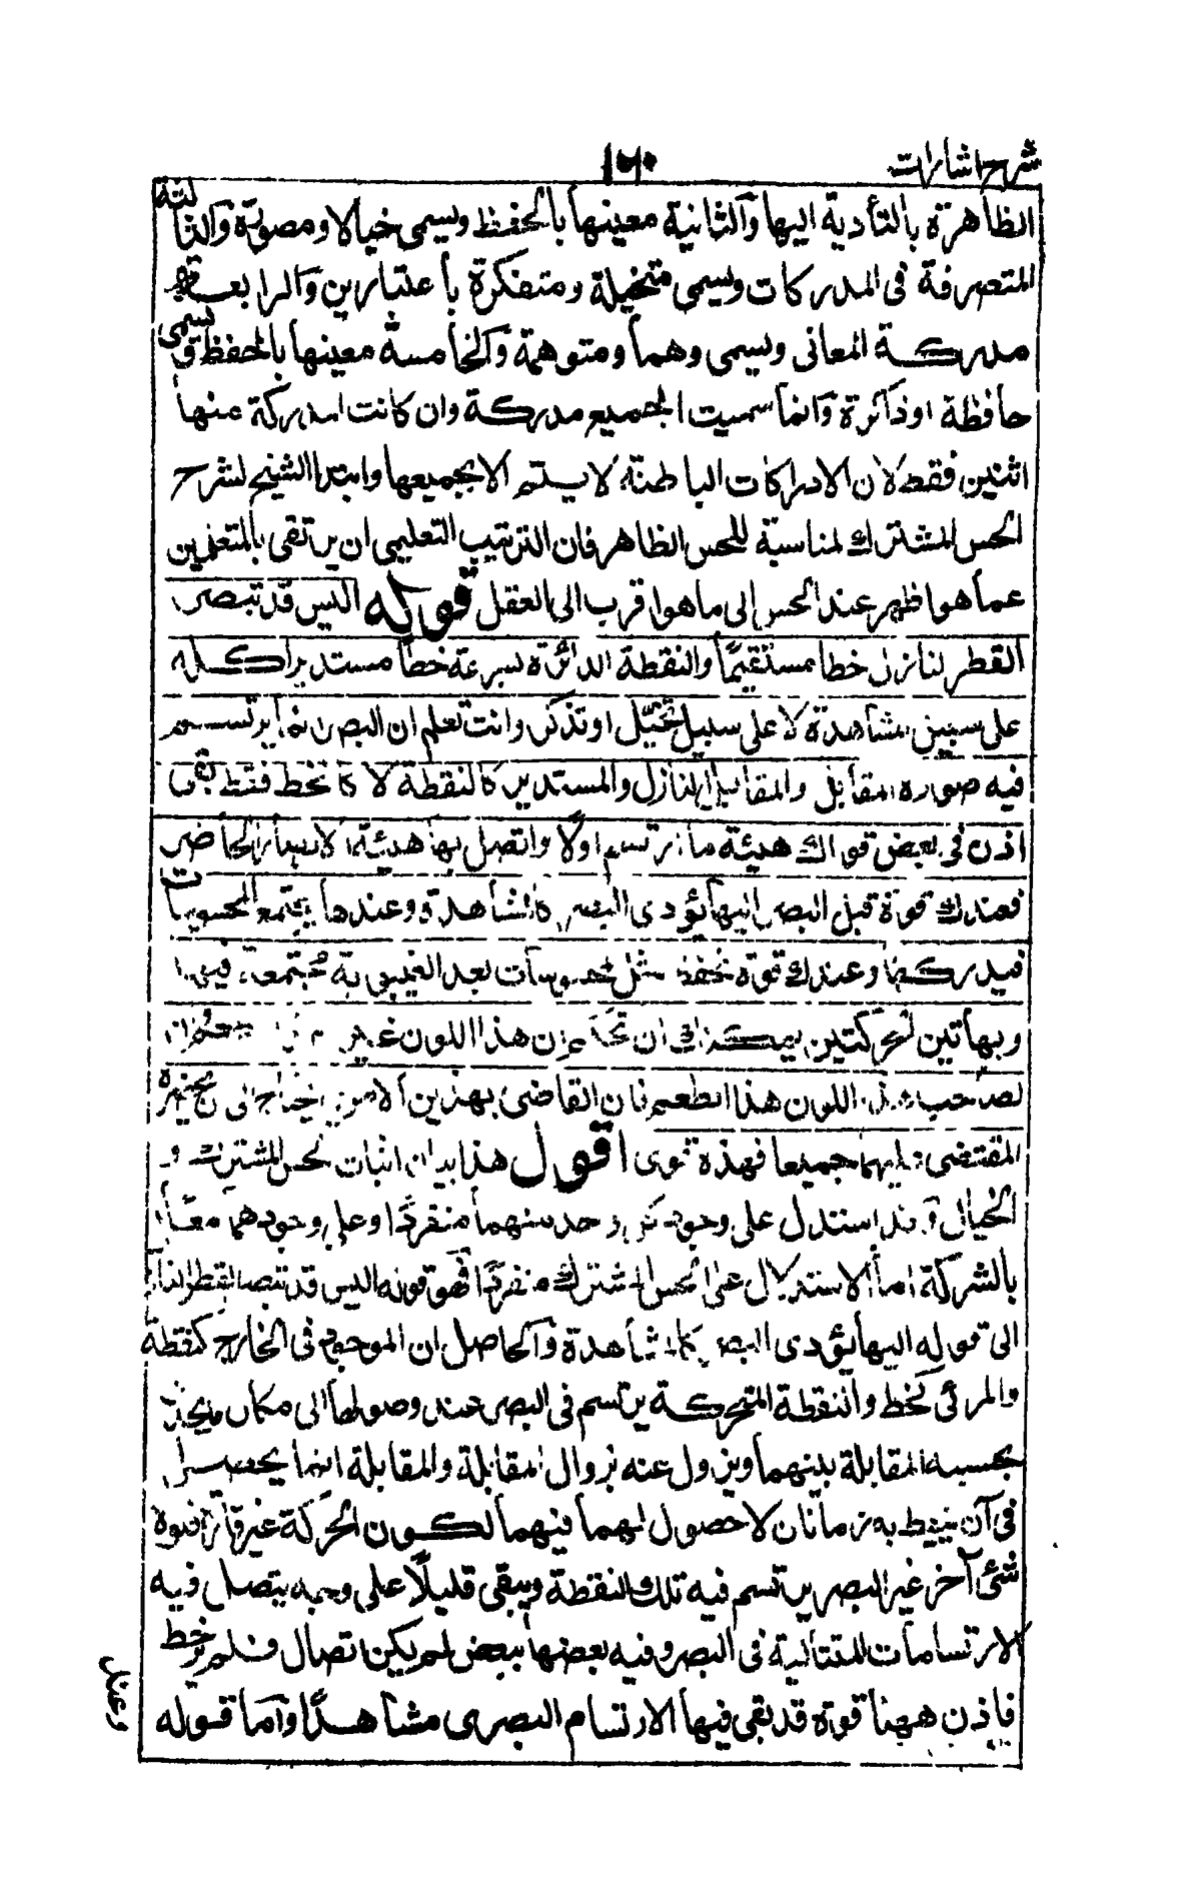 شرح اشارات
الظاهرة بالتأدية اليها والثانية معينها بالحفظ ويسمى خيالا ومصورة والثالثة
المتصرفة فى المدركات ويسمى متخيلة ومتفكرة باعتبارين والرابعة
مدركة المعانى ويسمى وهما ومتوهمة والخامسة معينها بالحفظ و يسمى
حافظة او ذاكرة وانما سميت الجميع مدركة وان كانت المدركة منها
اثنين فقط لان الادراكات الباطنة لا يتم الا بجميعها وابتدا الشيخ لشرح
الحس المشترك لمناسبة للحس الظاهر فان الترتيب التعليمى ان يرتقى بالمتعلمين
عما هو اظهر عند الحس الى ما هو اقرب الى العقل قوله اليس قد تبصر
القطر لنازل خطا مستقيما والنقطة الدائرة بسرعة خطا مستديرا كله
على سبيل المشاهدة لا على سبيل تخيل او تذكر وانت تعلم ان البصر انما يرتسم
فيه صورة المقابل والمقابل النازل والمستدير كالنقطة لا كالخط فقط بقى
اذن فى بعض قواك هيئة ما ارتسم اولا واتصل بها هيئة الابصار الحاضر
فعندك قوة قبل البصر اليها يؤدى البصر كالمشاهدة وعندها يجتمع المحسوسات
فيدركها وعندك قوة تحفظ مثل المحسوسات بعد الغيبوبة مجتمعة فيها
وبهاتين القوتين يمكنك ان تحكم ان هذا اللون غير
لصاحب هذا اللون هذا الطعم فان القاضى بهذين الامرين يحتاج الى
المقتضى عليهما جميعا فهذه قوى اقول هذا بيان اثبات الحس المشترك و
الخيال وقد استدل على وجود كل واحد منهما منفردا وعلى وجودهما معا
بالشركة اما الاستدلال على الحس المشترك منفردا فهو قوله اليس قد تبصر القطر النازل
الى قوله اليها يؤدى البصر كالمشاهدة والحاصل ان الموجود فى الخارج كنقطة
والمرئى كخط والنقطة المتحركة يرتسم فى البصر عند وصولها الى مكان يحدث
بحسبه المقابلة بينهما ويزول عنه بزوال المقابلة والمقابلة انما يحصل
فى آن يحيط به زمانان لا حصول لهما فيهما لكون الحركة غير قارة فلولا
شئ آخر غير البصر يرتسم فيه تلك النقطة ويبقى قليلا على وجه يتصل فيه
الارتسامات المتتالية فى البصر وفيه بعضها ببعض لم يكن اتصال فلم ير خط
فاذن ههنا قوة قد بقى فيها الارتسام البصرى مشاهدا واما قوله
وعندك